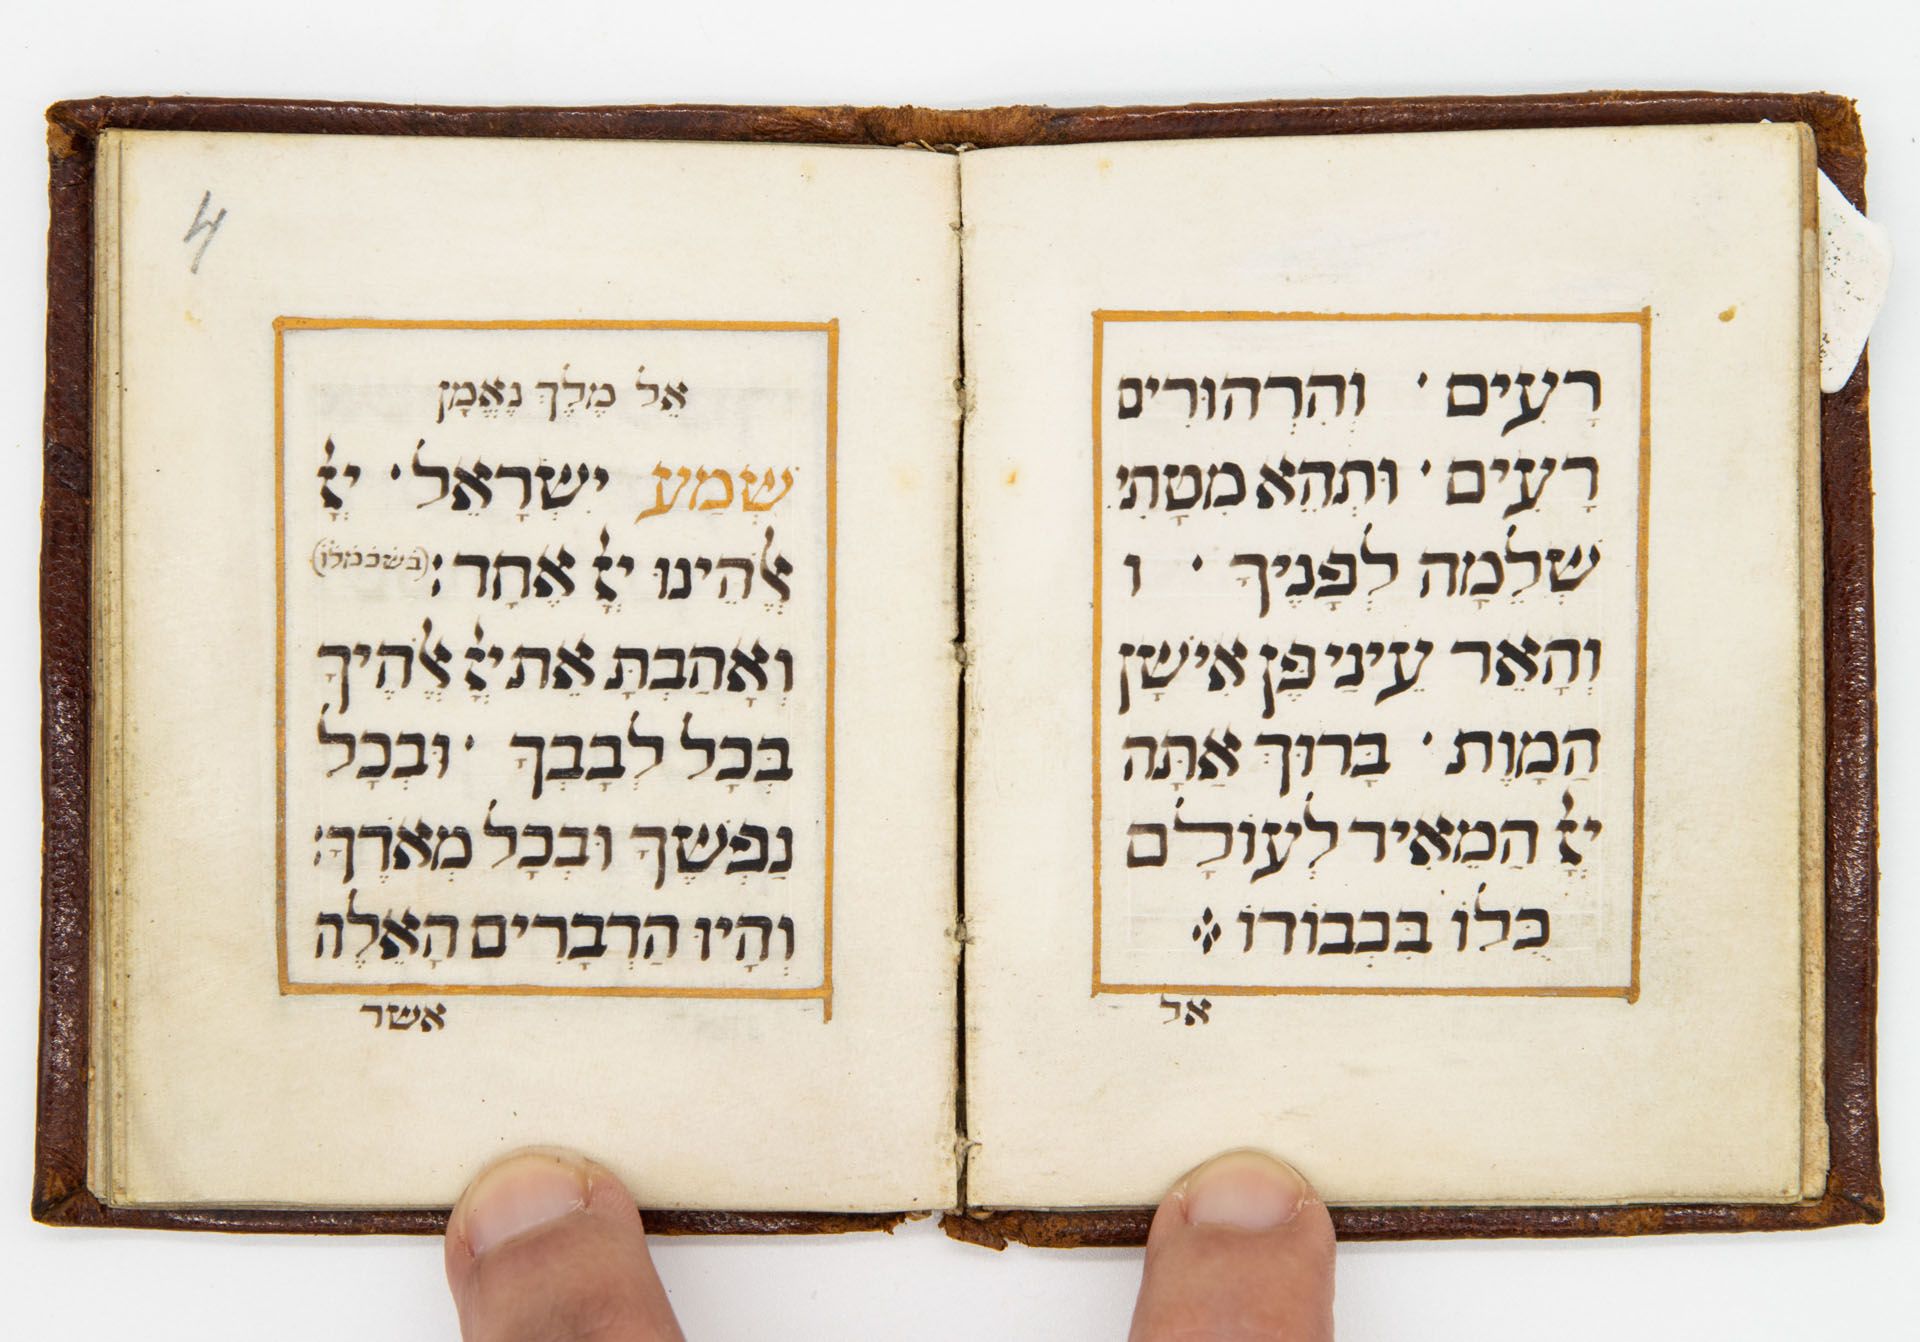 רָעִים ׳ וְהִרְהוּרִים
רָעִים ׳ וּתְהֵא מִטָתִי
שְׁלֵמָה לְפָנֶיךָ ׳ ו
וְהָאֵר עֵינַי פֶּן אִישָׁן
הַמָוֶת ׳ בָּרוּךְ אַתָּה
יְיָ הַמֵאִיר לְעוֹלָם
כֻּלוֹ בִּכְבוֹדוֹ
אל
4
אֵל מֶלֶךְ נֶאֱמָן
שְׁמַע יִשְׂרָאֵל ׳ יְיָ
אֱלֹהֵינוּ יְיָ אֶחָד : (בשכמלו)
וְאָהַבְתָּ אֵת יְיָ אֱלֹהֶיךָ
בְּכָל לְבָבְךָ ׳ וּבְכָל
נַפְשְׁךָ וּבְכָל מְאֹדֶךָ :
וְהָיוּ הַדְבָרִים הָאֵלֶה
אשר